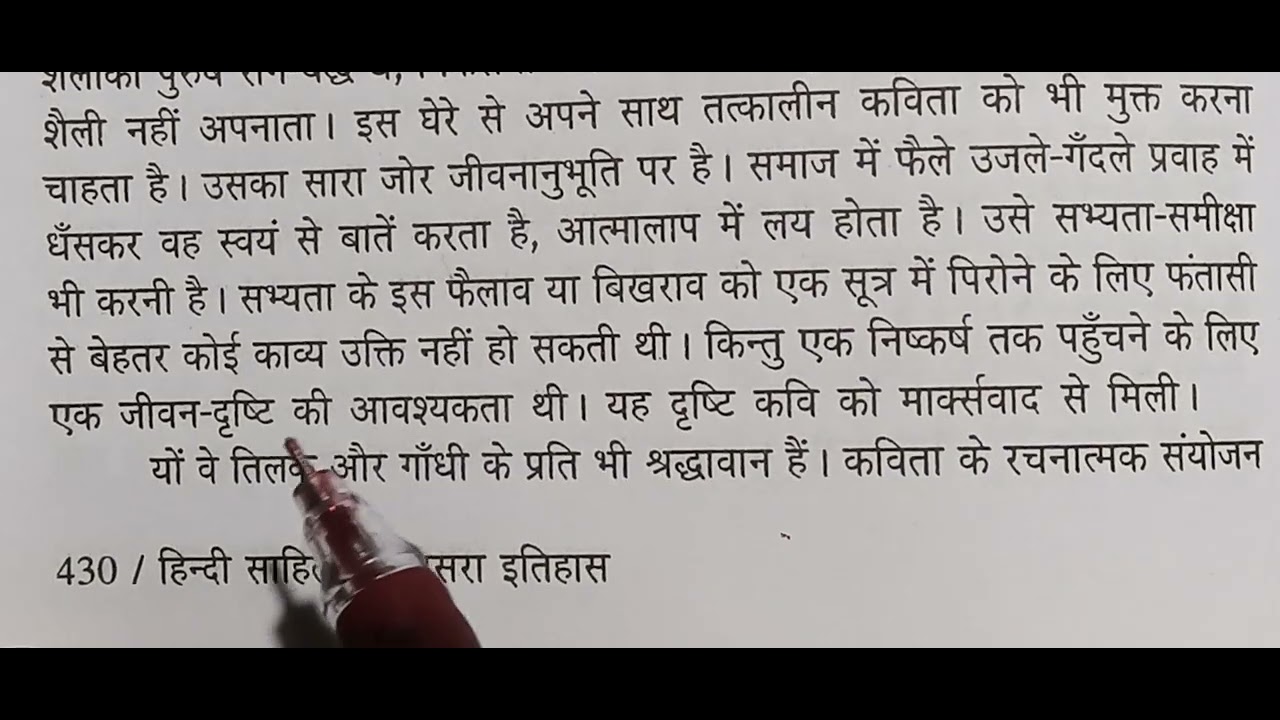 शैली नहीं अपनाता। इस घेरे से अपने साथ तत्कालीन कविता को भी मुक्त करना
चाहता है। उसका सारा जोर जीवनानुभूति पर है। समाज में फैले उजले-गँदले प्रवाह में
धँसकर वह स्वयं से बातें करता है, आत्मालाप में लय होता है। उसे सभ्यता-समीक्षा
भी करनी है। सभ्यता के इस फैलाव या बिखराव को एक सूत्र में पिरोने के लिए फंतासी
से बेहतर कोई काव्य उक्ति नहीं हो सकती थी। किन्तु एक निष्कर्ष तक पहुँचने के लिए
एक जीवन-दृष्टि की आवश्यकता थी। यह दृष्टि कवि को मार्क्सवाद से मिली।
यों वे तिलक और गाँधी के प्रति भी श्रद्धावान हैं। कविता के रचनात्मक संयोजन
430 / हिन्दी इतिहास